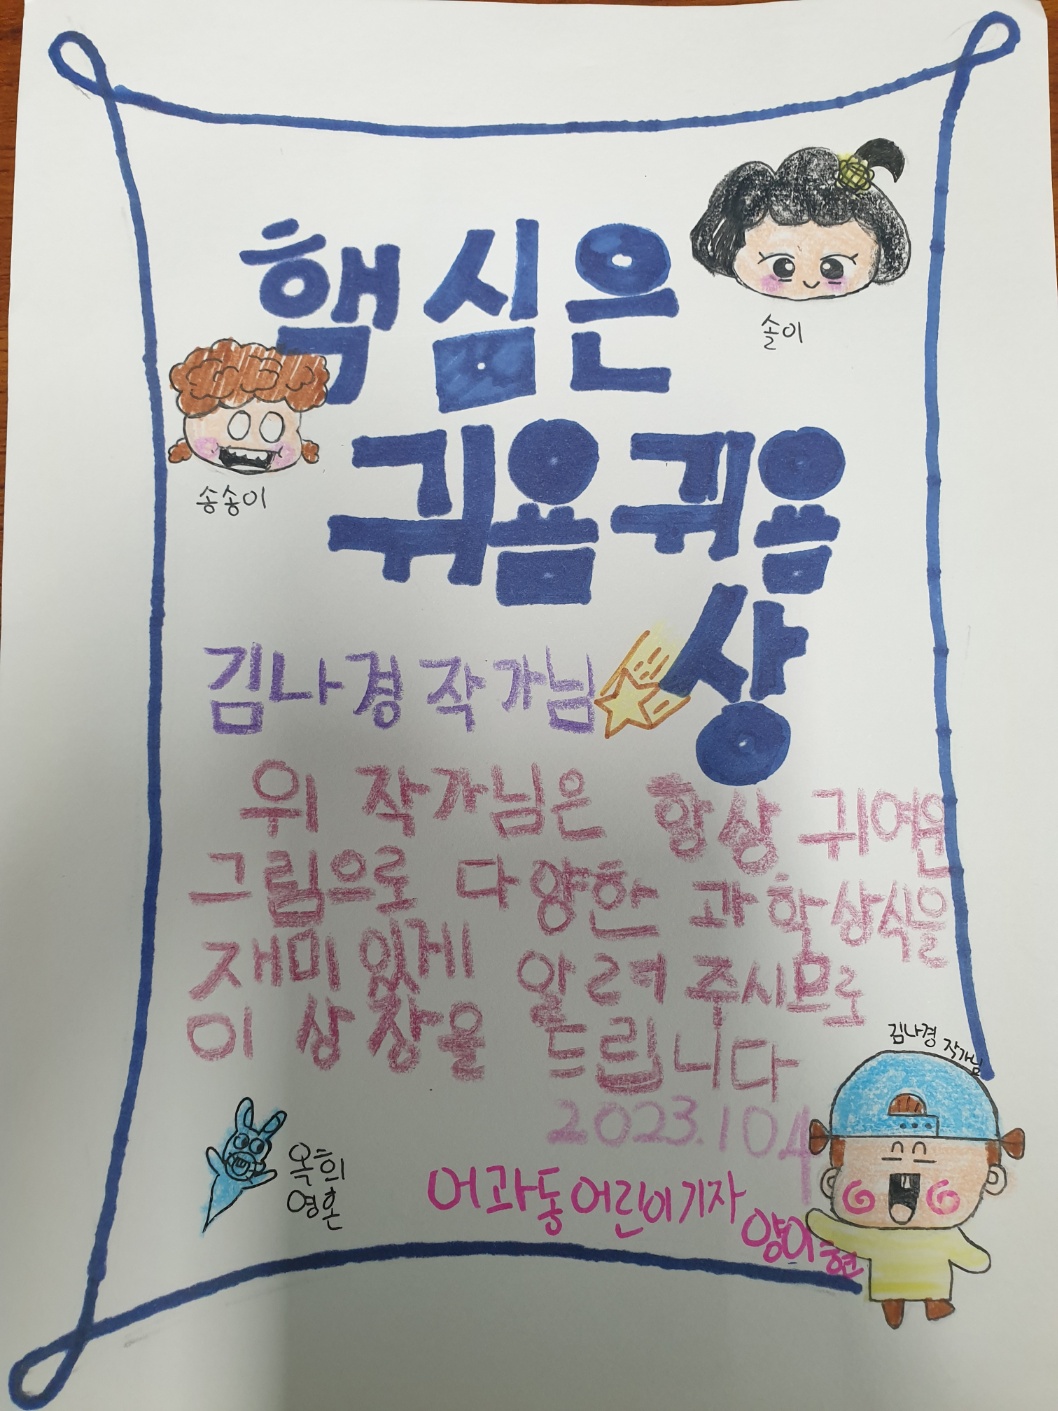 핵심은
솔이
송송이
귀욤귀욤
상
김나경 작가님
위 작가님은 항상 귀여운
그림으로 다양한 과학상식을
재미있게 알려주시므로
이 상장을 드립니다
김나경 작가님
2023.10.4
옥희
영혼
어과동 어린이기자
양이현